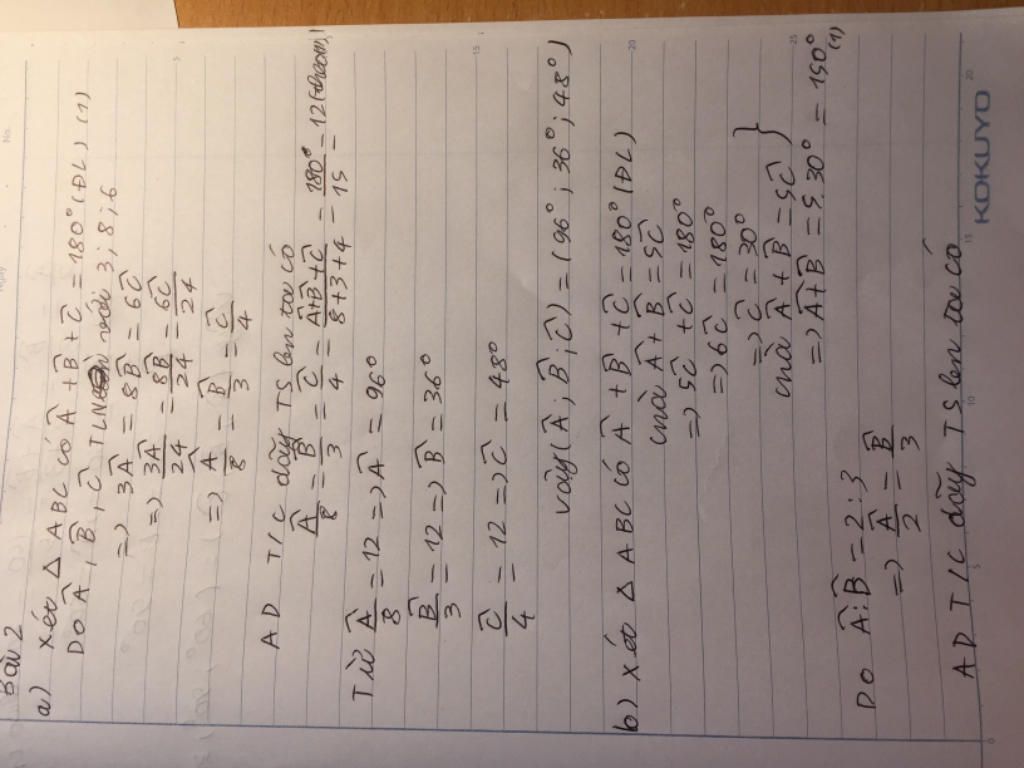 Bài 2
a) Xét △ ABC có Â + B̂ + Ĉ = 180° (ĐL) (1)
Do Â, B̂, Ĉ TLN với 3; 8; 6
=> 3Â = 8B̂ = 6Ĉ
=> 3Â/24 = 8B̂/24 = 6Ĉ/24
=> Â/8 = B̂/3 = Ĉ/4
AD T/C dãy TSBN ta có
Â/8 = B̂/3 = Ĉ/4 = Â+B̂+Ĉ/8+3+4 = 180°/15 = 12
Từ Â/8 = 12 => Â = 96°
B̂/3 = 12 => B̂ = 36°
Ĉ/4 = 12 => Ĉ = 48°
vậy (Â; B̂; Ĉ) = (96°; 36°; 48°)
b) Xét △ ABC có Â + B̂ + Ĉ = 180° (ĐL)
mà Â + B̂ = 5Ĉ
=> 5Ĉ + Ĉ = 180°
=> 6Ĉ = 180°
=> Ĉ = 30°
mà Â + B̂ = 5Ĉ
=> Â + B̂ = 5.30° = 150° (1)
Do Â:B̂ = 2:3
=> Â/2 = B̂/3
AD T/C dãy TSBN ta có
KOKUYO